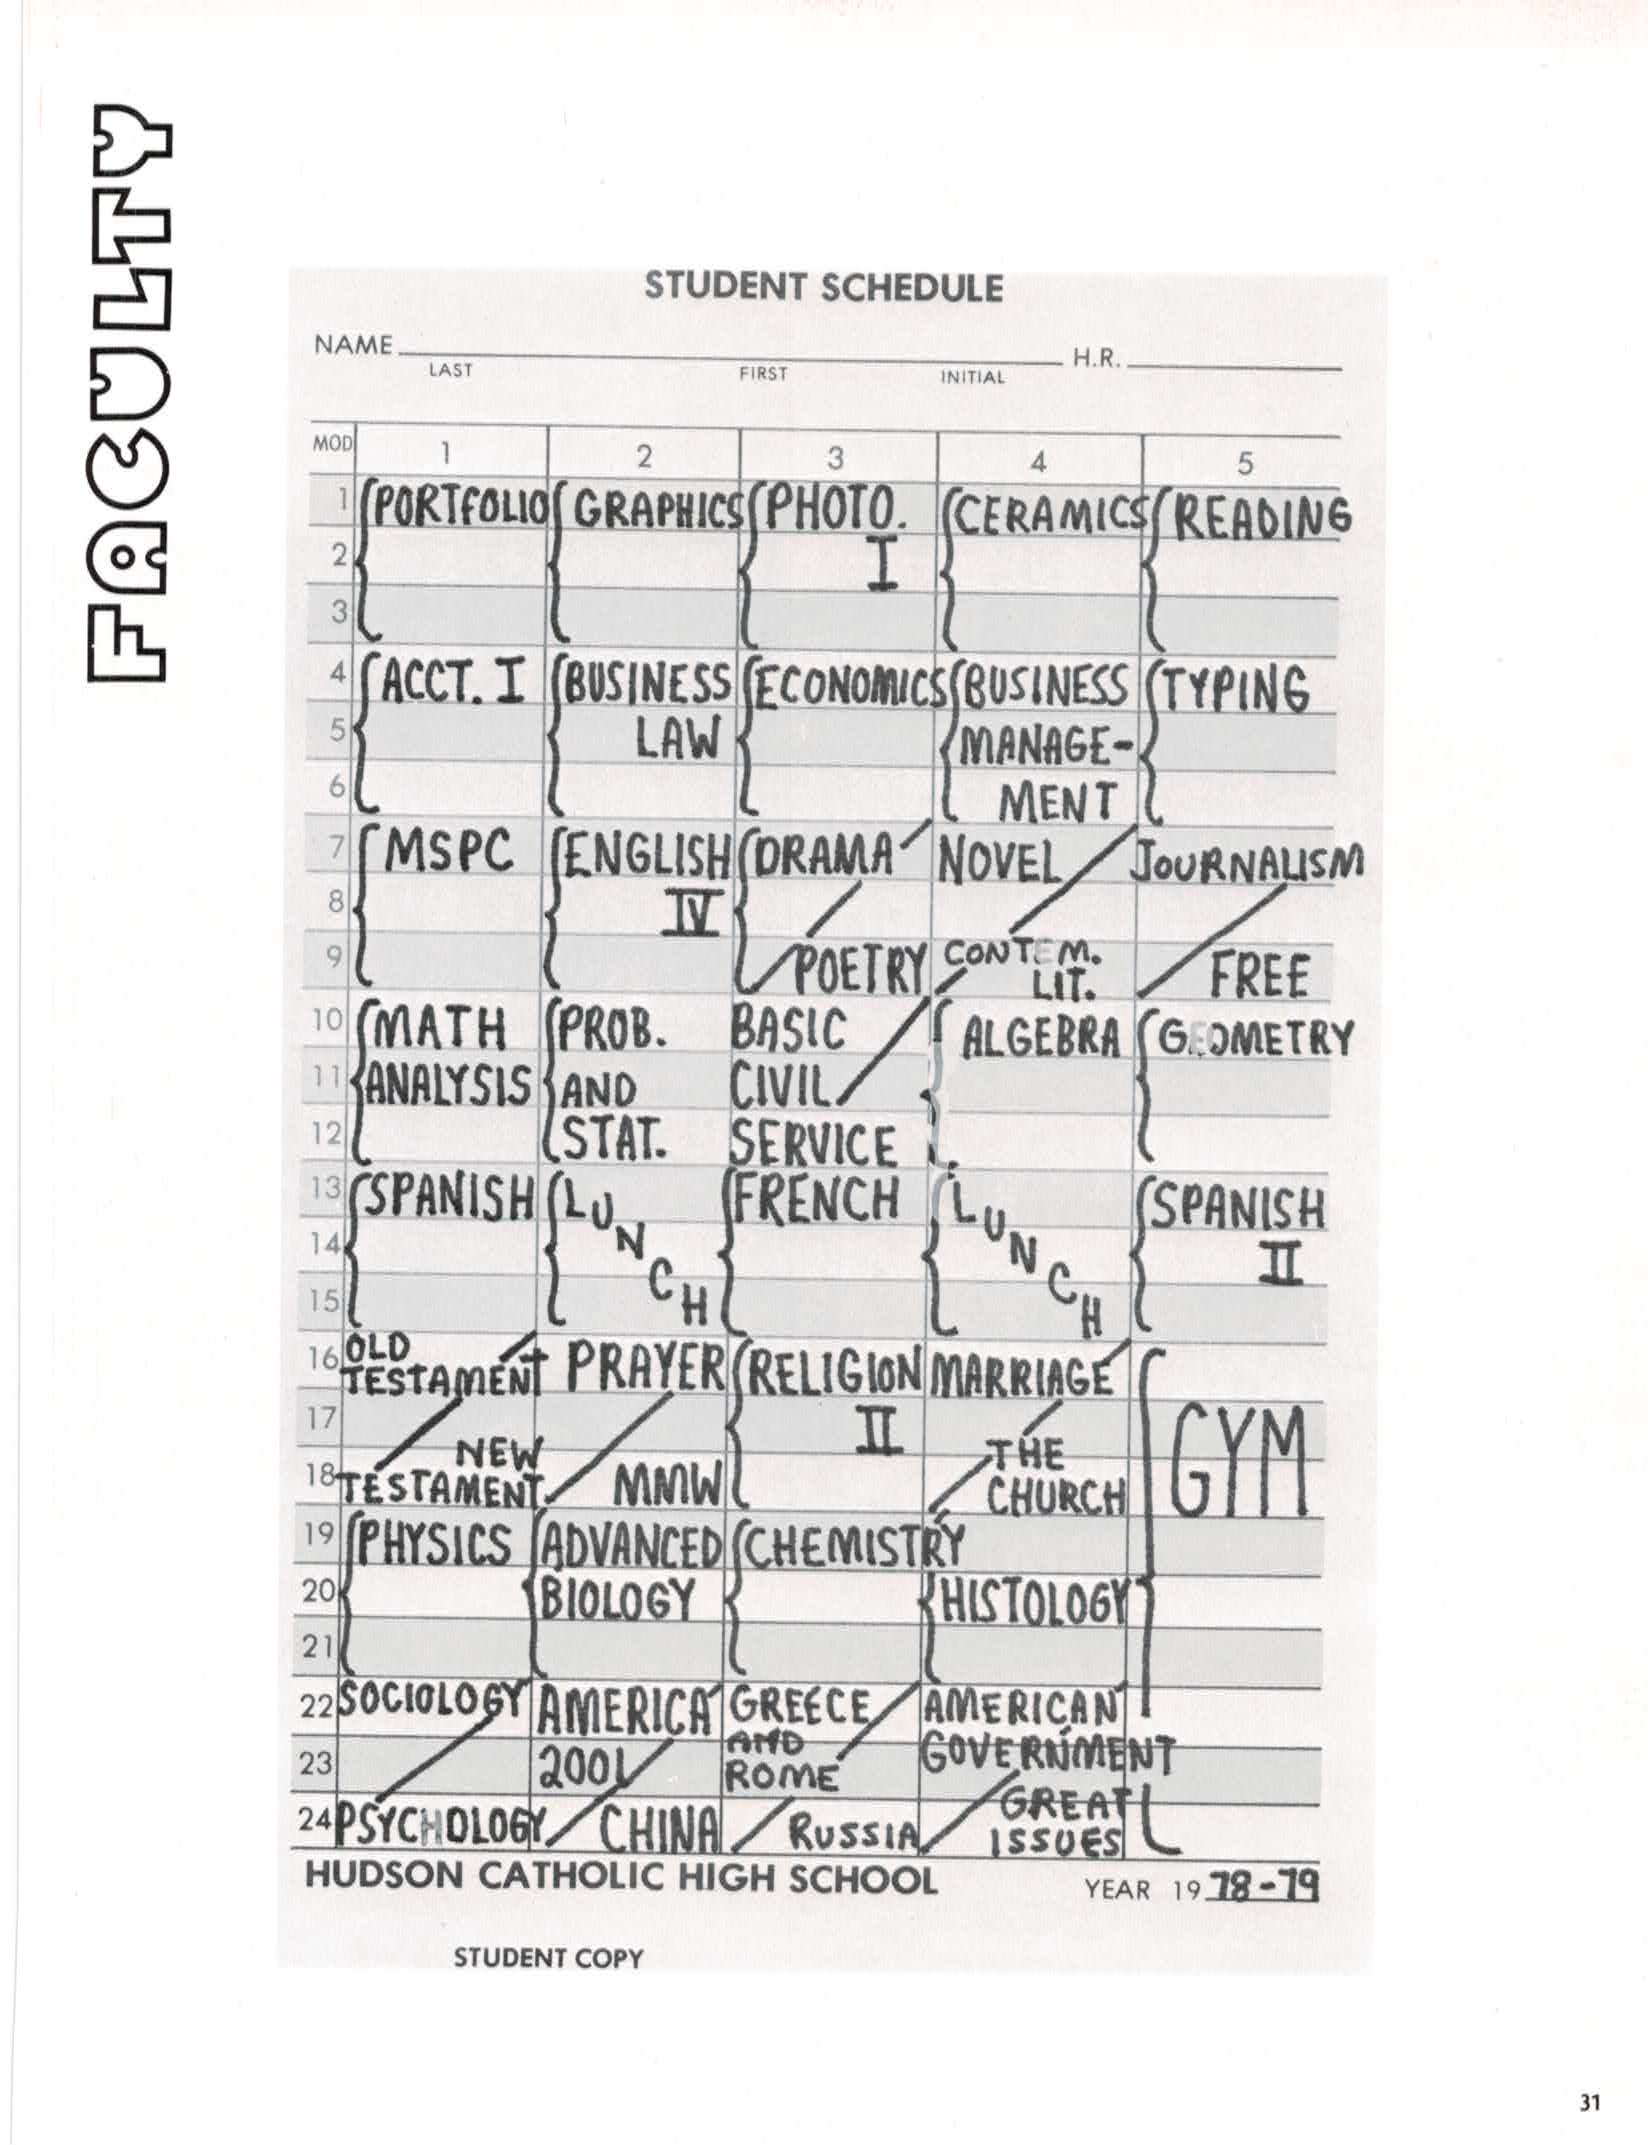 FACULTY
STUDENT SCHEDULE
NAME H.R.
LAST FIRST INITIAL
MOD 1 2 3 4 5
1 PORTFOLIO GRAPHICS PHOTO. CERAMICS READING
2 I
3
4 ACCT. I BUSINESS ECONOMICS BUSINESS TYPING
5 LAW MANAGE-
6 MENT
7 MSPC ENGLISH DRAMA NOVEL JOURNALISM
8 IV
9 POETRY CONTEM. LIT. FREE
10 MATH PROB. BASIC ALGEBRA GEOMETRY
11 ANALYSIS AND CIVIL
12 STAT. SERVICE
13 SPANISH LUNCH FRENCH LUNCH SPANISH
14 II
15
16 OLD TESTAMENT PRAYER RELIGION MARRIAGE
17 NEW II THE GYM
18 TESTAMENT MMW CHURCH
19 PHYSICS ADVANCED CHEMISTRY
20 BIOLOGY HISTOLOGY
21
22 SOCIOLOGY AMERICA GREECE AMERICAN
23 2001 AND ROME GOVERNMENT
24 PSYCHOLOGY CHINA RUSSIA GREAT ISSUES
HUDSON CATHOLIC HIGH SCHOOL YEAR 19 78-79
STUDENT COPY
31